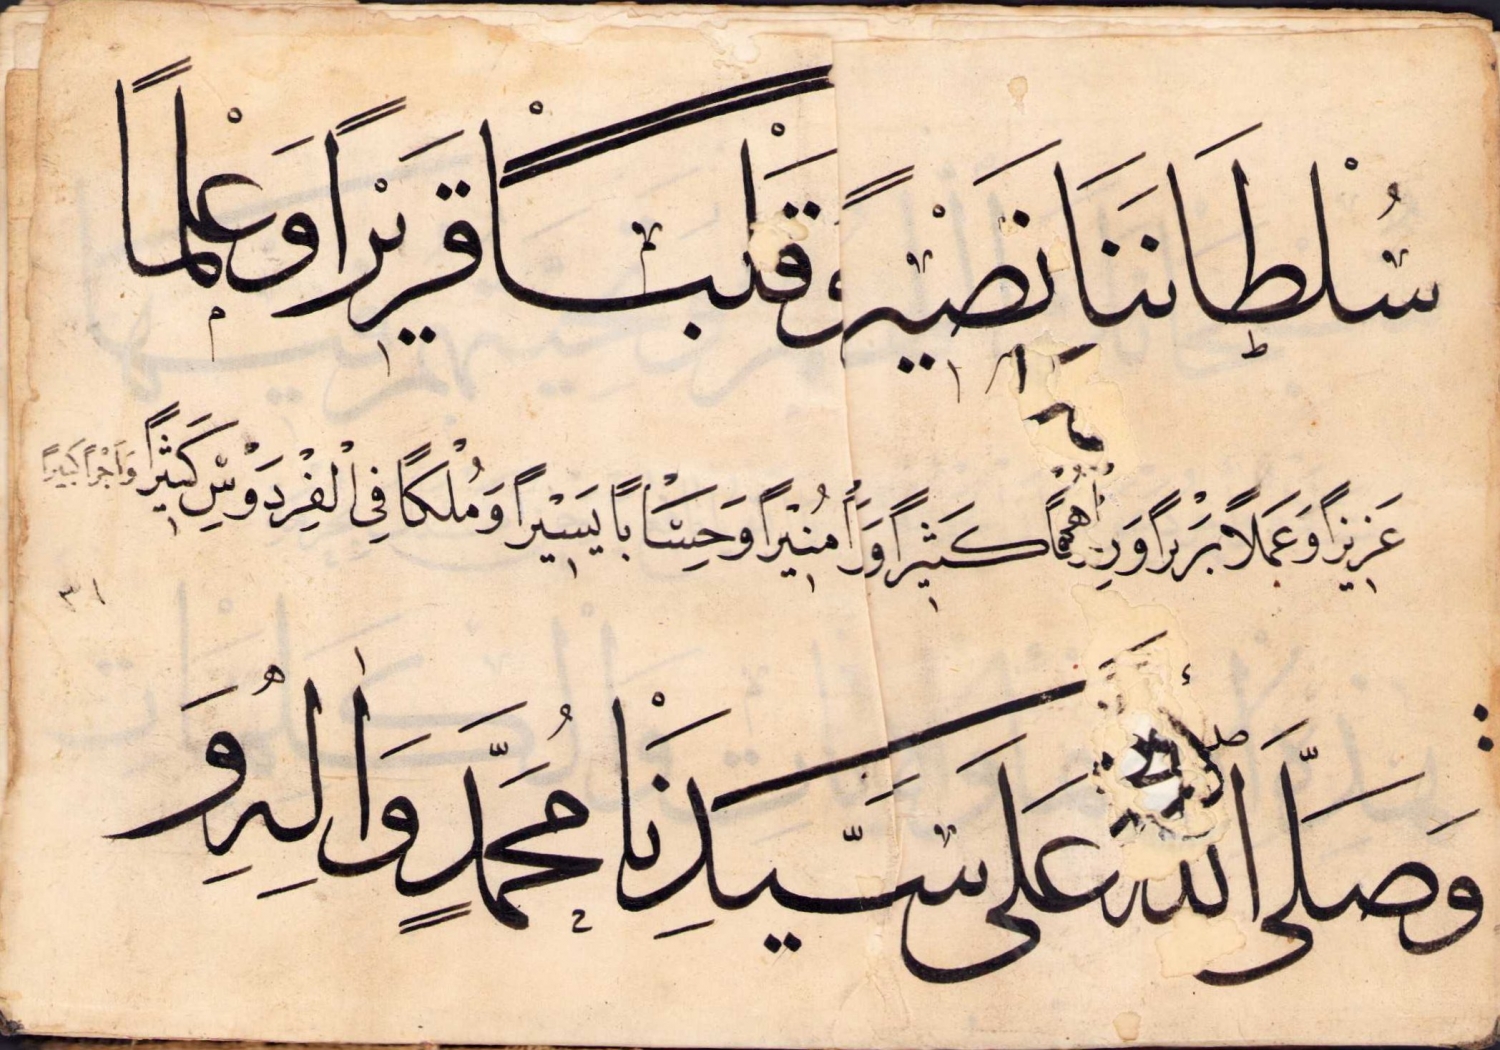 سُلْطَانَنَا نَصِيْرًا وَقَلْبًا قَرِيْرًا وَعِلْمًا
عَزِيزًا وَعَمَلًا بَرِيْرًا كَثِيْرًا مُنِيْرًا وَحِسَابًا يَسِيْرًا وَمُلْكًا فِي الْفِرْدَوْسِ كَبِيْرًا وَاَجْرًا كَبِيْرًا
وَصَلَّى اللهُ عَلَى سَيِّدِنَا مُحَمَّدٍ وَاٰلِهِ وَ